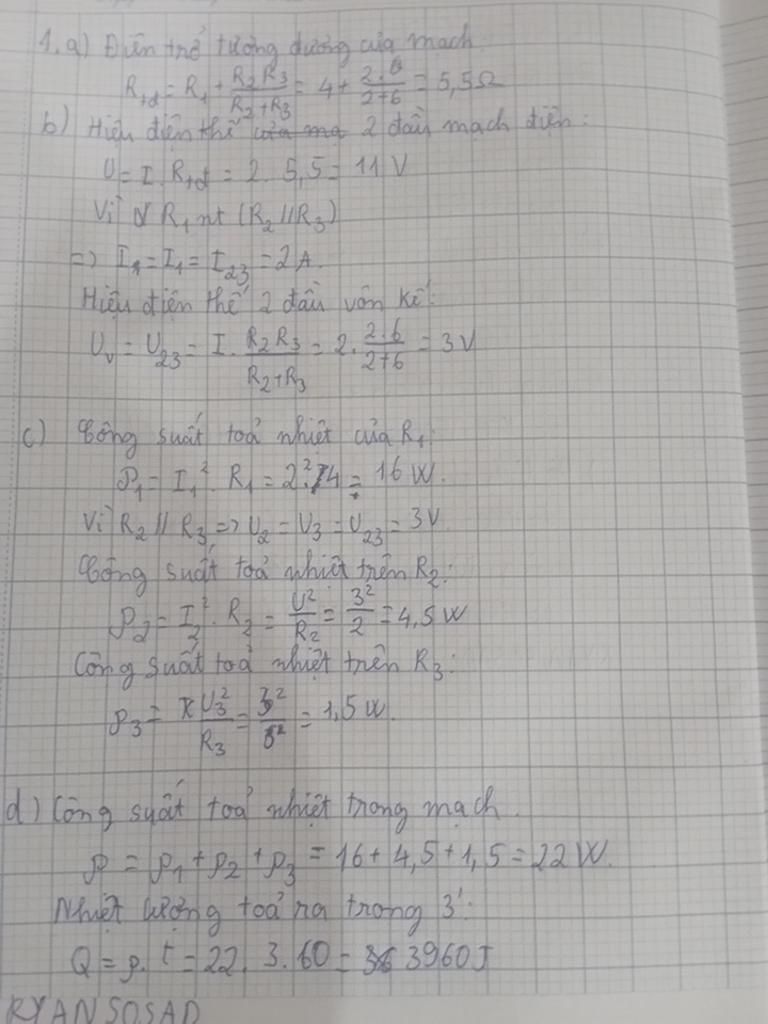 1.a) Điện trở tương đương của mạch
R_tđ = R_1 + R_2 R_3 / R_2+R_3 = 4 + 2.6 / 2+6 = 5,5Ω
b) Hiệu điện thế của ma 2 đầu mạch điện:
U = I. R_tđ = 2. 5,5 = 11 V
Vì R_1 nt (R_2 // R_3)
=> I_1 = I_1 = I_23 = 2A.
Hiệu điện thế 2 đầu vôn kế:
U_v = U_23 = I. R_2 R_3 / R_2+R_3 = 2. 2.6 / 2+6 = 3V
c) Công suất toả nhiệt của R_1:
P_1 = I_1². R_1 = 2².4 = 16 W.
Vì R_2 // R_3 => U_2 = U_3 = U_23 = 3V
Công suất toả nhiệt trên R_2:
P_2 = I_2². R_2 = U² / R_2 = 3² / 2 = 4,5 W
Công suất toả nhiệt trên R_3:
P_3 = U_3² / R_3 = 3² / 6 = 1,5 W.
d) Công suất toả nhiệt trong mạch.
P = P_1 + P_2 + P_3 = 16 + 4,5 + 1,5 = 22 W.
Nhiệt lượng toả ra trong 3':
Q = P. t = 22. 3. 60 = 3960J
RYANSOSAD